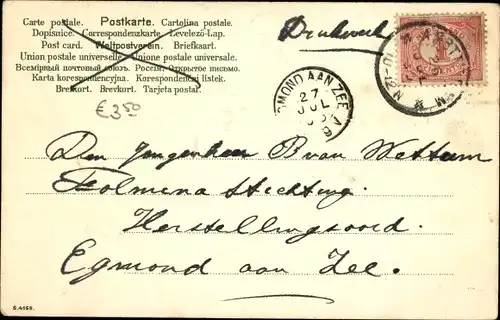 Carte postale. Postkarte. Cartolina postale.
Dopisnice. Correspondenzkarte. Levelező-Lap.
Post card. Weltpostverein. Briefkaart.
Union postale universelle. Unione postale universale.
Всемірный почтовый союзъ. Россія. Открытое письмо.
Karta korespondencyjna. Korespondenční listek.
Brefkort. Brevkort. Tarjeta postal.
Drukwerk
€3,50
EGMOND AAN ZEE
27
JUL
Den Jongenheer B van Wettum
Stichting
Herstellingsoord.
Egmond aan Zee.
S.4159.